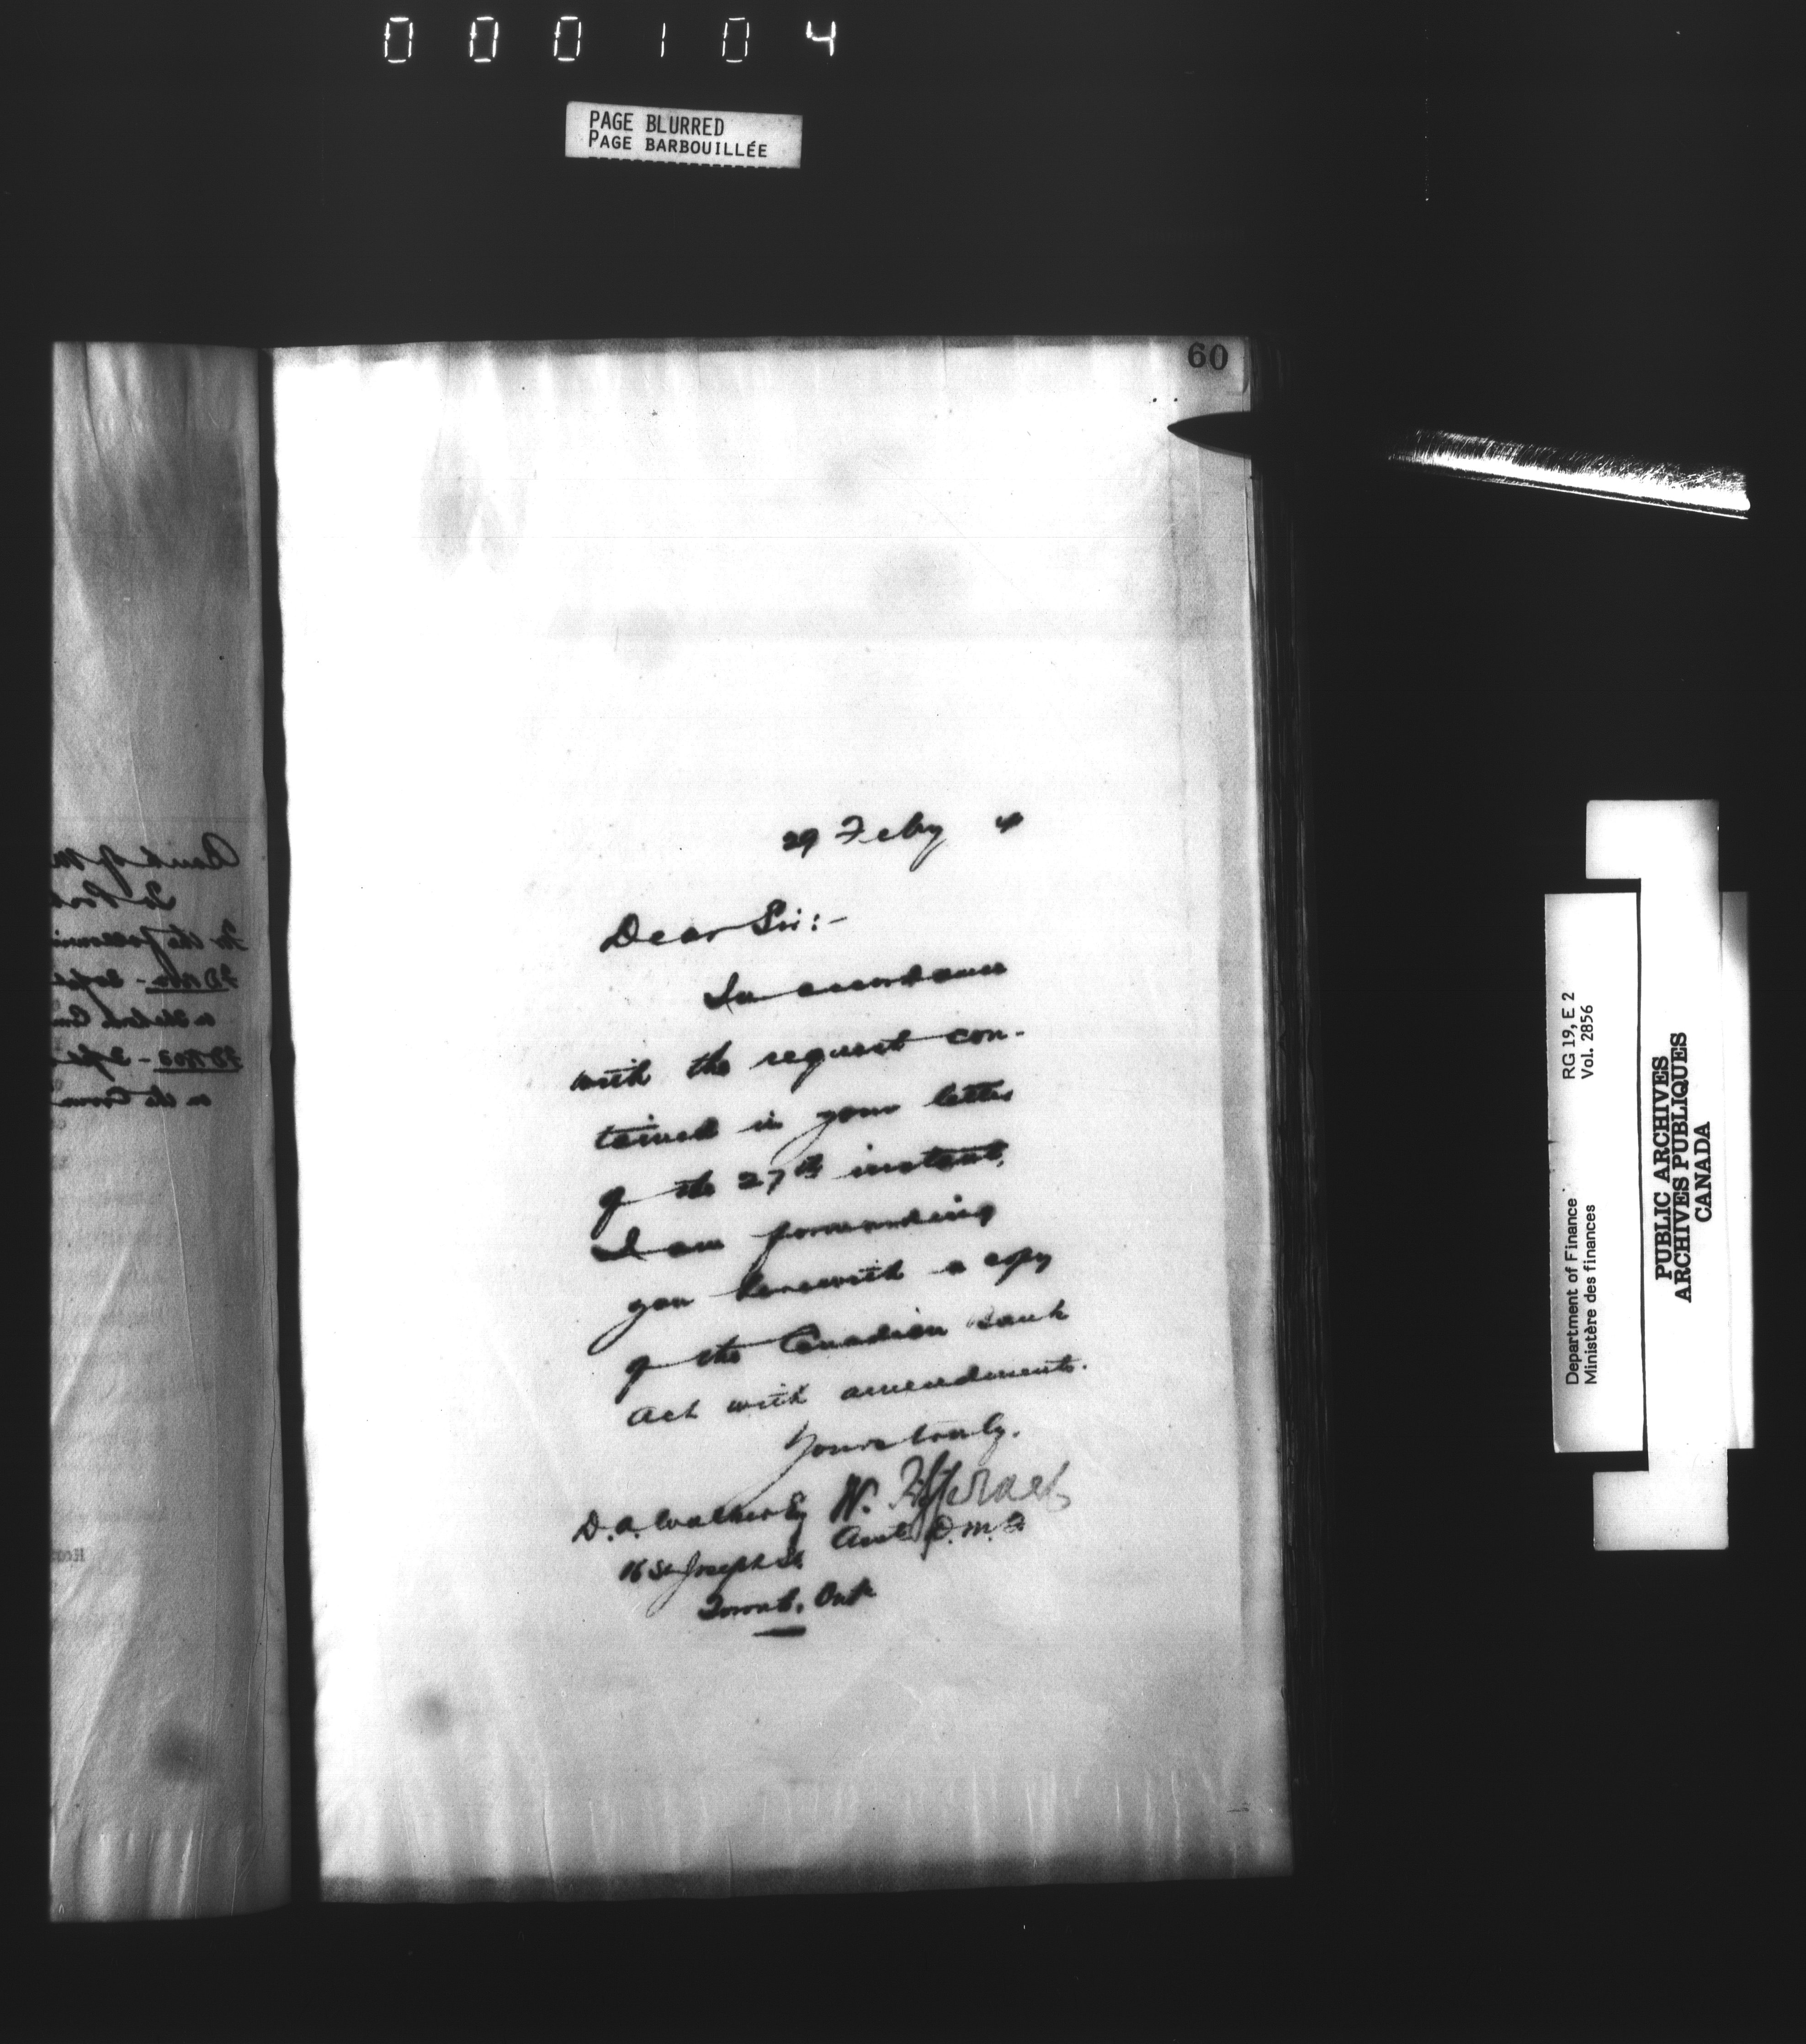 000104
PAGE BLURRED
PAGE BARBOUILLÉE
60
29 Feby
Dear Sir:-
In accordance
with the request con-
tained in your letter
of the 27th instant,
I am forwarding
you herewith a copy
of the Canadian Bank
Act with amendments.
Yours truly,
D. A. Walker Esq W.
16 St Joseph St. Asst D.M.F.
Toronto, Ont
RG 19, E 2
Vol. 2856
Department of Finance
Ministère des finances
PUBLIC ARCHIVES
ARCHIVES PUBLIQUES
CANADA